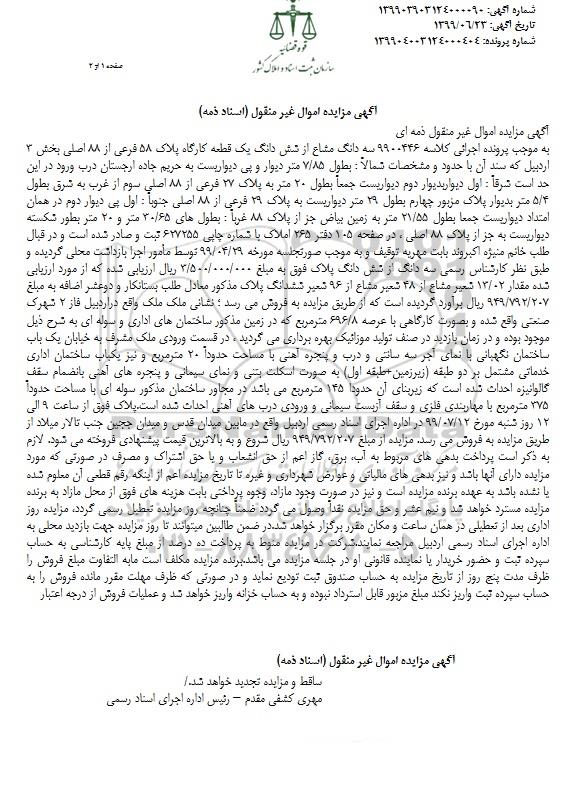 شماره آگهی: ۱۳۹۹۰۳۹۰۳۱۲۴۰۰۰۰۹۰
تاریخ آگهی: ۱۳۹۹/۰۶/۲۳
شماره پرونده: ۱۳۹۹۰۴۰۰۳۱۲۴۰۰۰۴۰۴
قوه قضائیه
سازمان ثبت اسناد و املاک کشور
صفحه ۱ از ۲
آگهی مزایده اموال غیر منقول (اسناد ذمه)
آگهی مزایده اموال غیر منقول ذمه ای
به موجب پرونده اجرائی کلاسه ۹۹۰۰۴۴۶ سه دانگ مشاع از شش دانگ یک قطعه کارگاه پلاک ۵۸ فرعی از ۸۸ اصلی بخش ۳
اردبیل که سند آن با حدود و مشخصات شمالاً : بطول ۷/۸۵ متر دیوار و پی دیواریست به حریم جاده ارجستان درب ورود در این
حد است شرقاً : اول دیواربدیوار دوم دیواریست جمعاً بطول ۲۰ متر به پلاک ۲۷ فرعی از ۸۸ اصلی سوم از غرب به شرق بطول
۵/۴ متر بدیوار پلاک مزبور چهارم بطول ۲۹ متر دیواریست به پلاک ۲۹ فرعی از ۸۸ اصلی جنوباً : اول پی دیوار دوم در همان
امتداد دیواریست جمعا بطول ۲۱/۵۵ متر به زمین بیاض جز از پلاک ۸۸ غرباً : بطول های ۳۰/۶۵ متر و ۲۰ متر بطور شکسته
دیواریست به جز از پلاک ۸۸ اصلی ، در صفحه ۱۰۵ دفتر ۲۶۵ املاک با شماره چاپی ۶۲۷۲۵۵ ثبت و صادر شده است و در قبال
طلب خانم منیژه اکبروند بابت مهریه توقیف و به موجب صورتجلسه مورخه ۹۹/۰۴/۲۹ توسط مأمور اجرا بازداشت محلی گردیده و
طبق نظر کارشناس رسمی سه دانگ از شش دانگ پلاک فوق به مبلغ ۳/۵۰۰/۰۰۰/۰۰۰ ریال ارزیابی شده که از مورد ارزیابی
شده مقدار ۱۳/۰۲ شعیر مشاع از ۴۸ شعیر مشاع از ۹۶ شعیر ششدانگ پلاک مذکور معادل طلب بستانکار و دوعشر اضافه به مبلغ
۹۴۹/۷۹۲/۲۰۷ ریال برآورد گردیده است که از طریق مزایده به فروش می رسد ؛ نشانی ملک ملک واقع دراردبیل فاز ۲ شهرک
صنعتی واقع شده و بصورت کارگاهی با عرصه ۶۹۶/۸ مترمربع که در زمین مذکور ساختمان های اداری و سوله ای به شرح ذیل
موجود بوده و در زمان بازدید در صنف تولید موزائیک بهره برداری می گردید ، در قسمت ورودی ملک مشرف به خیابان یک باب
ساختمان نگهبانی با نمای آجر سه سانتی و درب و پنجره آهنی با مساحت حدوداً ۲۰ مترمربع و نیز یکباب ساختمان اداری
خدماتی مشتمل بر دو طبقه (زیرزمین+طبقه اول) به صورت اسکلت بتنی و نمای سیمانی و پنجره های آهنی بانضمام سقف
گالوانیزه احداث شده است که زیربنای آن حدوداً ۱۴۵ مترمربع می باشد در مجاور ساختمان مذکور سوله ای با مساحت حدوداً
۳۷۵ مترمربع با مهاربندی فلزی و سقف آزبست سیمانی و ورودی درب های آهنی احداث شده است.پلاک فوق از ساعت ۹ الی
۱۲ روز شنبه مورخ ۹۹/۰۷/۱۲ در اداره اجرای اسناد رسمی اردبیل واقع در مابین میدان قدس و میدان ججین جنب تالار میلاد از
طریق مزایده به فروش می رسد. مزایده از مبلغ ۹۴۹/۷۹۲/۲۰۷ ریال شروع و به بالاترین قیمت پیشنهادی فروخته می شود. لازم
به ذکر است پرداخت بدهی های مربوط به آب، برق، گاز اعم از حق انشعاب و یا حق اشتراک و مصرف در صورتی که مورد
مزایده دارای آنها باشد و نیز بدهی های مالیاتی و عوارض شهرداری و غیره تا تاریخ مزایده اعم از اینکه رقم قطعی آن معلوم شده
یا نشده باشد به عهده برنده مزایده است و نیز در صورت وجود مازاد، وجوه پرداختی بابت هزینه های فوق از محل مازاد به برنده
مزایده مسترد خواهد شد و نیم عشر و حق مزایده نقداً وصول می گردد ضمناً چنانچه روز مزایده تعطیل رسمی گردد، مزایده روز
اداری بعد از تعطیلی در همان ساعت و مکان مقرر برگزار خواهد شد.در ضمن طالبین میتوانند تا روز مزایده جهت بازدید محلی به
اداره اجرای اسناد رسمی اردبیل مراجعه نمایند.شرکت در مزایده منوط به پرداخت ده درصد از مبلغ پایه کارشناسی به حساب
سپرده ثبت و حضور خریدار یا نماینده قانونی او در جلسه مزایده می باشد.برنده مزایده مکلف است مابه التفاوت مبلغ فروش را
ظرف مدت پنج روز از تاریخ مزایده به حساب صندوق ثبت تودیع نماید و در صورتی که ظرف مهلت مقرر مانده فروش را به
حساب سپرده ثبت واریز نکند مبلغ مزبور قابل استرداد نبوده و به حساب خزانه واریز خواهد شد و عملیات فروش از درجه اعتبار
آگهی مزایده اموال غیر منقول (اسناد ذمه)
ساقط و مزایده تجدید خواهد شد./
مهری کشفی مقدم – رئیس اداره اجرای اسناد رسمی